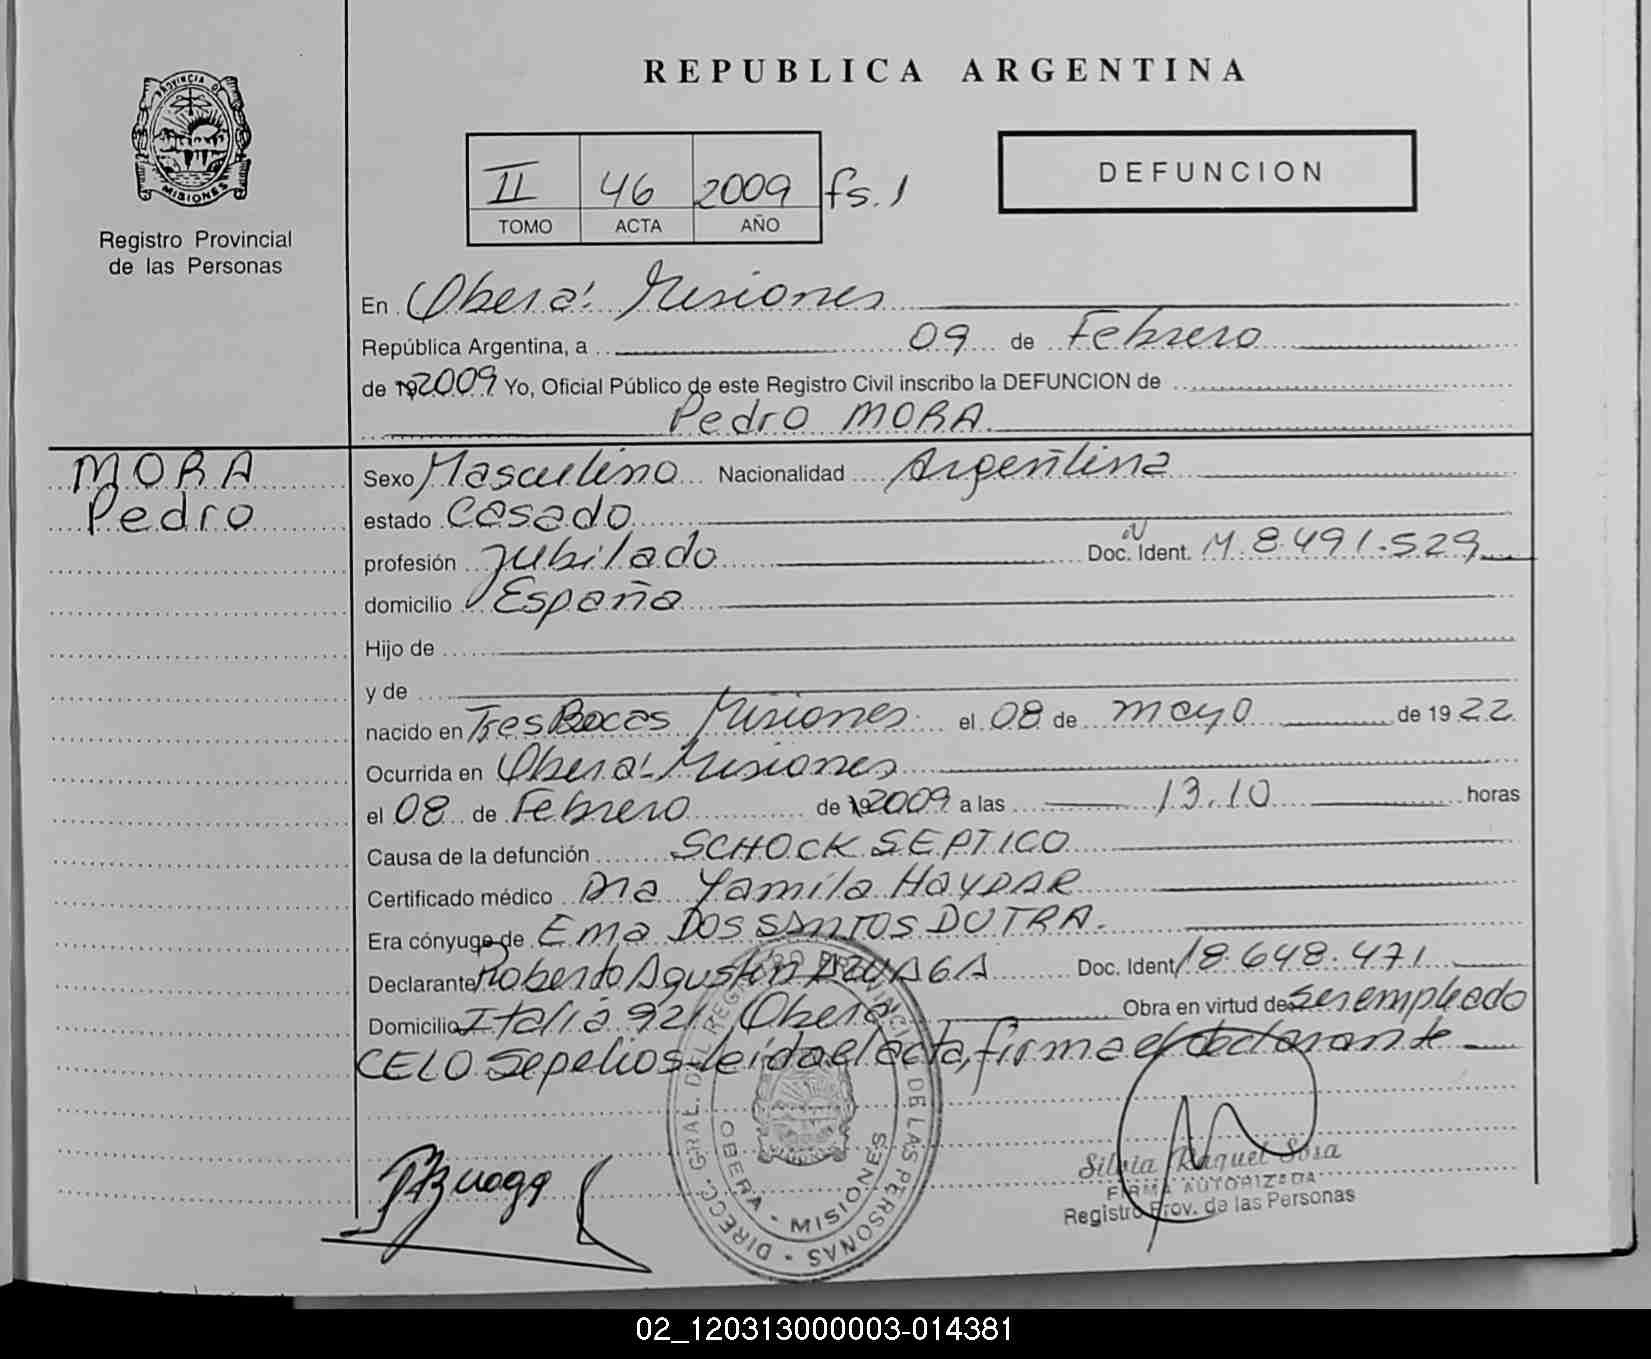 REPUBLICA ARGENTINA
PROVINCIA DE
MISIONES
Registro Provincial
de las Personas
II 46 2009 fs. 1
TOMO ACTA AÑO
DEFUNCION
En Oberá: Misiones
República Argentina, a 09 de Febrero
de 192009 Yo, Oficial Público de este Registro Civil inscribo la DEFUNCION de
Pedro MORA
MORA
Pedro
Sexo Masculino Nacionalidad Argentina
estado Casado
profesión Jubilado Doc. Ident. M. 8.491.529
domicilio España
Hijo de
y de
nacido en Tres Bocas Misiones el 08 de mayo de 1922
Ocurrida en Oberá - Misiones
el 08 de Febrero de 192009 a las 13.10 horas
Causa de la defunción SCHOCK SEPTICO
Certificado médico Dra Yamila HAYDAR
Era cónyuge de Ema DOS SANTOS DUTRA.
Declarante Roberto Agustin AZUAGA Doc. Ident 18.648.471
Domicilio Italia 921 Oberá Obra en virtud de ser empleado
CELO Sepelios - leída el acta, firma el declarante
DIRECC. GRAL. DEL REGISTRO PROVINCIAL DE LAS PERSONAS
OBERA - MISIONES
Silvia Raquel Sosa
FIRMA AUTORIZADA
Registro Prov. de las Personas
02_120313000003-014381